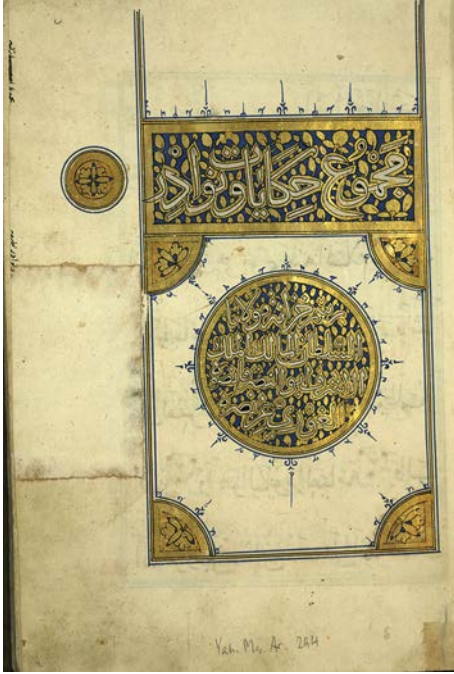 مجموع حكايات ونوادر
برسم خزانة مولانا
السلطان المالك الملك
الاشرف ابو النصر قانصوه
الغوري عز نصره
Yah. Ms. Ar. 294